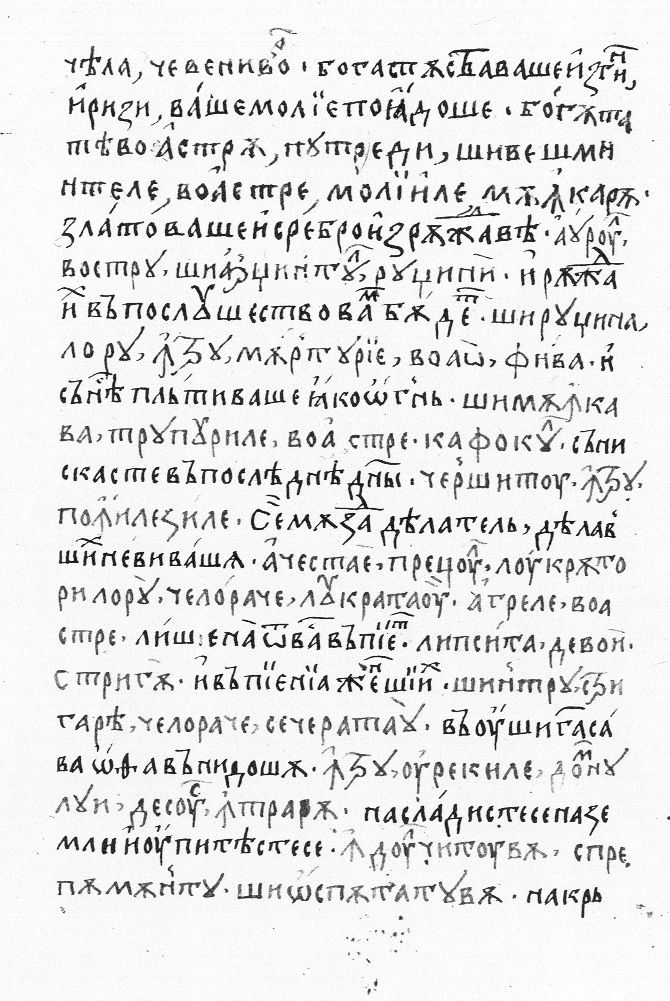 чѣлѧ, чевениво́д · богастѧсѣⷷавашеи҆згни,
и҆ризи, ва́шемолїепоꙗ҆доше · бо́гѫта
тѣвоа҆стрѫ, путреди, шивешми
нтеле, воа҆стре, молїи҆ле, мѫѫ҆карѫ ·
зла́товашеи҆сре́брои҆зрѫжⷧавѣ · а҆ѵроуⷧ,
востру, шиа҆рꙟцинтꙋⷧ, руцини · и҆рѫжⷣа
иⷯвъпослꙋшествоваⷨбѫдеⷮ · шируцина,
лору, ꙟ҆тру, мѫртурїе, воаѡ҆, фива · и҆
сънѣⷭплътивашеꙗ҆коѡ҆гнь · шимѫꙟ҆ка
ва, трупꙋриле, воа҆ стре · кафокꙋⷧ · съни
скастевъпослѣднѣдн҃ы · чершитоу · ꙟ҆ꙁу,
поꙟ҆илеꙁиле · Семѫзⷣа дѣлатель, дѣлав
шиⷯневива́шѧ · а҆честае, прецоуⷧ, лоукрѫто
рилорꙋ, челораче, лꙋкратаоу · а҆греле, воа
стре · лишенаѿва́въпїеⷮ · липсита, девои ·
стригѫ · и҆въпїенїажеⷩшїиⷯ · шинтру, ꙁи
гарѣ, челораче, сечератаꙋ · въоу҆шигаса́
ваѡ҆ѳавънидошѧ · ꙟ҆ꙁу, оу҆рекиле, доⷨну
луи, десоуⷭ, ꙟ҆трарѫ · насла́дистесеназе
млии҆оу҆питѣстесе · ꙟ҆доуⷧчитоувѫ, спре,
пѫмѫнту · шиѡ҆спѫтатувѫ · накрь